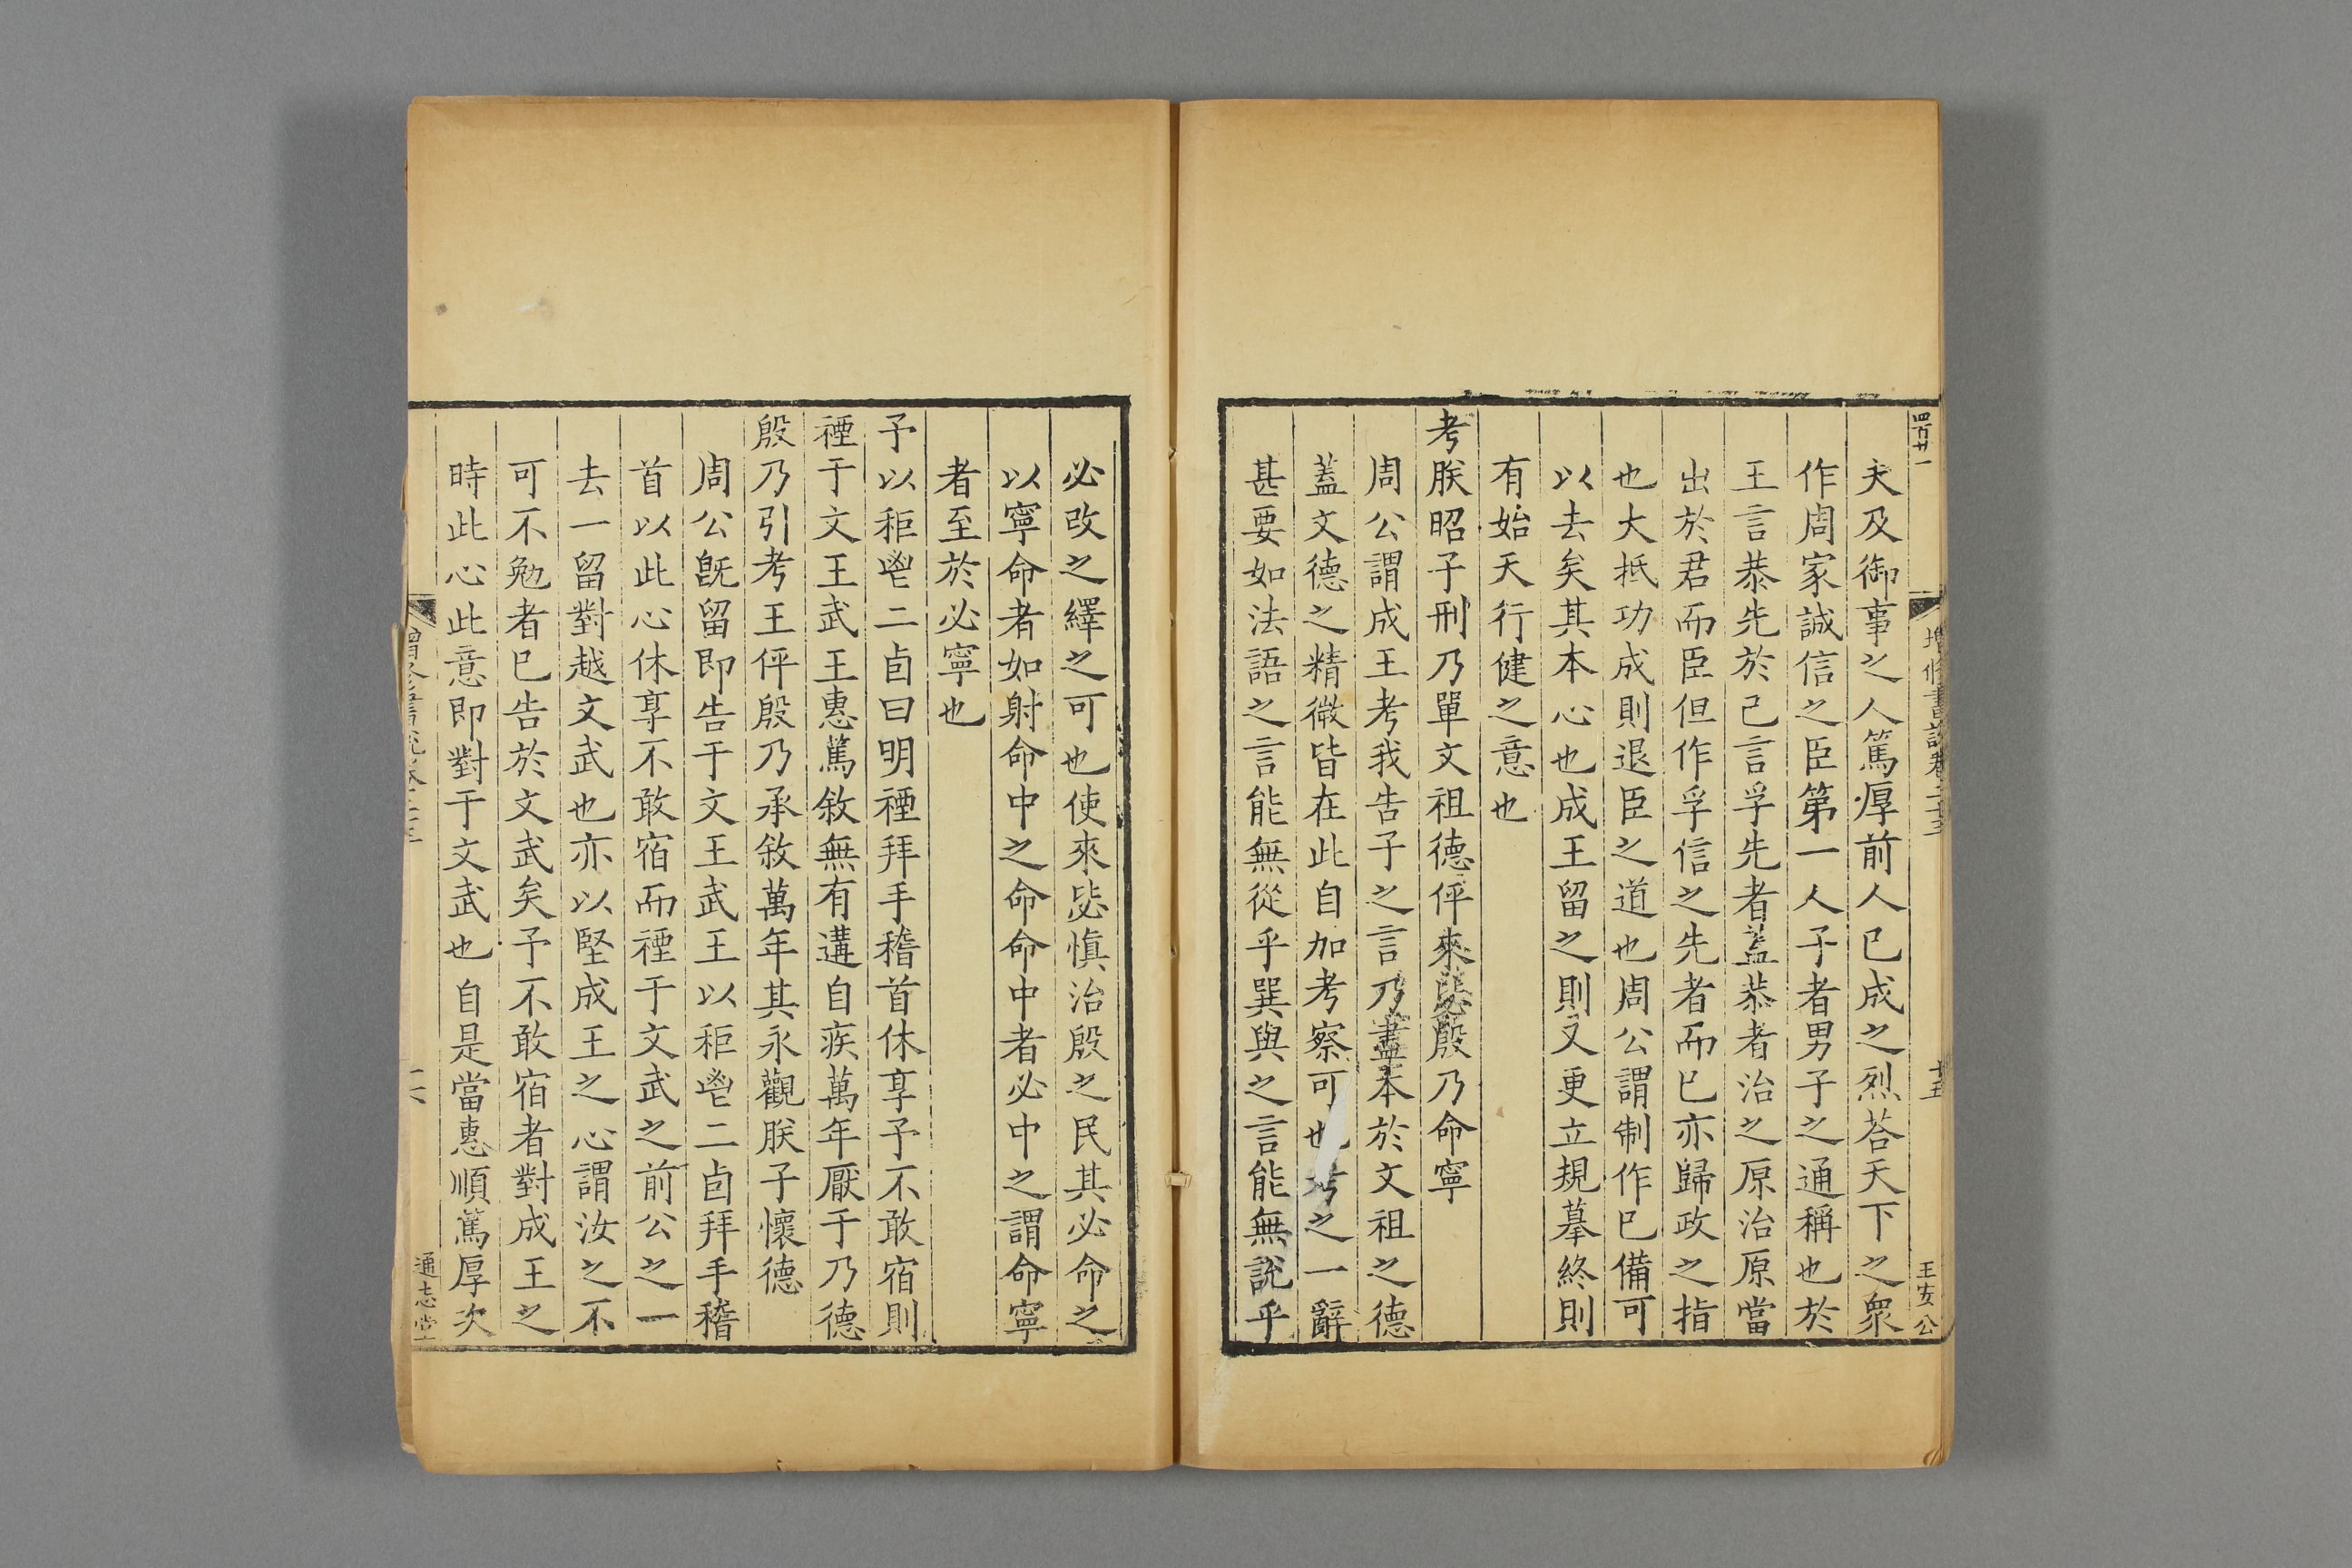 四百廿一
增修書說卷二十三
十五
王安公
夫及御事之人篤厚前人已成之烈荅天下之衆
作周家誠信之臣第一人子者男子之通稱也於
王言恭先於己言孚先者蓋恭者治之原治原當
出於君而臣但作孚信之先者而已亦歸政之指
也大抵功成則退臣之道也周公謂制作已備可
以去矣其本心也成王留之則又更立規摹終則
有始天行健之意也
考朕昭子刑乃單文祖德伻來毖殷乃命寧
周公謂成王考我告子之言乃盡本於文祖之德
蓋文德之精微皆在此自加考察可也考之一辭
甚要如法語之言能無從乎巽與之言能無說乎
必改之繹之可也使來毖愼治殷之民其必命之
以寧命者如射命中之命命中者必中之謂命寧
者至於必寧也
予以秬鬯二卣曰明禋拜手稽首休享予不敢宿則
禋于文王武王惠篤敘無有遘自疾萬年厭于乃德
殷乃引考王伻殷乃承敘萬年其永觀朕子懷德
周公旣留卽告于文王武王以秬鬯二卣拜手稽
首以此心休享不敢宿而禋于文武之前公之一
去一留對越文武也亦以堅成王之心謂汝之不
可不勉者已告於文武矣予不敢宿者對成王之
時此心此意卽對于文武也自是當惠順篤厚次
通志堂